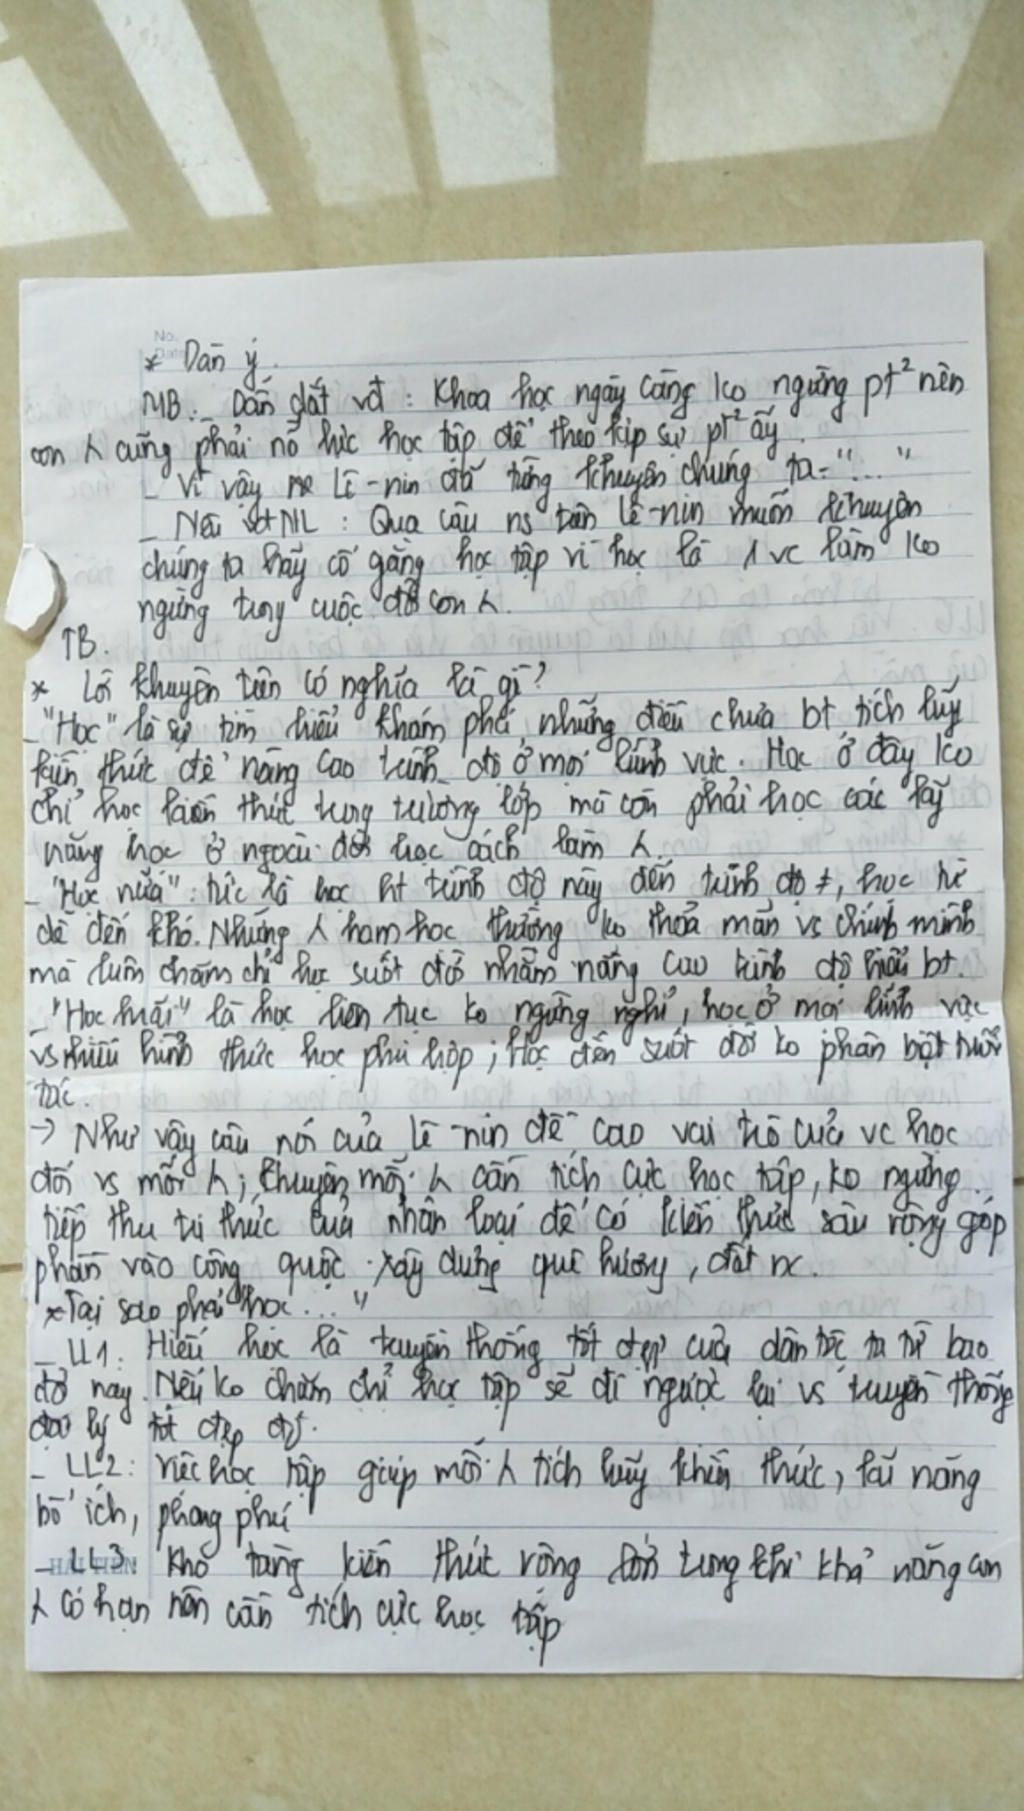 No.
Date
* Dàn ý.
MB: _ Dẫn dắt vđ : Khoa học ngày càng ko ngừng pt² nên
con λ cũng phải nỗ lực học tập để theo kịp sự pt² ấy.
_ Vì vậy Lê-nin đã từng khuyên chúng ta: "..."
_ Nêu NL : Qua câu ns trên Lê-nin muốn khuyên
chúng ta hãy cố gắng học tập vì học là 1 vc làm ko
ngừng trong cuộc đời con λ.
TB.
* Lời khuyên trên có nghĩa là gì?
_ "Học" là sự tìm hiểu khám phá những điều chưa bt tích lũy
kiến thức để nâng cao trình độ ở mọi lĩnh vực. Học ở đây ko
chỉ học kiến thức trong trường lớp mà còn phải học các kỹ
năng học ở ngoài đời học cách làm λ.
_ "Học nữa": tức là học ht trình độ này đến trình độ ≠, học từ
dễ đến khó. Những λ ham học thường ko thỏa mãn vs chính mình
mà luôn chăm chỉ học suốt đời nhằm nâng cao trình độ hiểu bt.
_ "Học mãi" là học liên tục ko ngừng nghỉ, học ở mọi lĩnh vực
vs nhiều hình thức học phù hợp; Học đến suốt đời ko phân biệt tuổi
tác.
→ Như vậy câu nói của Lê-nin đề cao vai trò của vc học
đối vs mỗi λ; khuyên mỗi λ cần tích cực học tập, ko ngừng
tiếp thu tri thức của nhân loại để có kiến thức sâu rộng góp
phần vào công quộc xây dựng quê hương, đất nc.
* Tại sao phải "học..."
_ LL1: Hiếu học là truyền thống tốt đẹp của dân tộc ta từ bao
đời nay. Nếu ko chăm chỉ học tập sẽ đi ngược lại vs truyền thống
đạo lý tốt đẹp đó.
_ LL2: Việc học tập giúp mỗi λ tích lũy khiến thức, kĩ năng
bổ ích, phong phú
_ LL3: Kho tàng kiến thức rộng lớn trong khi khả năng con
HẢI TIẾN
λ có hạn nên cần tích cực học tập